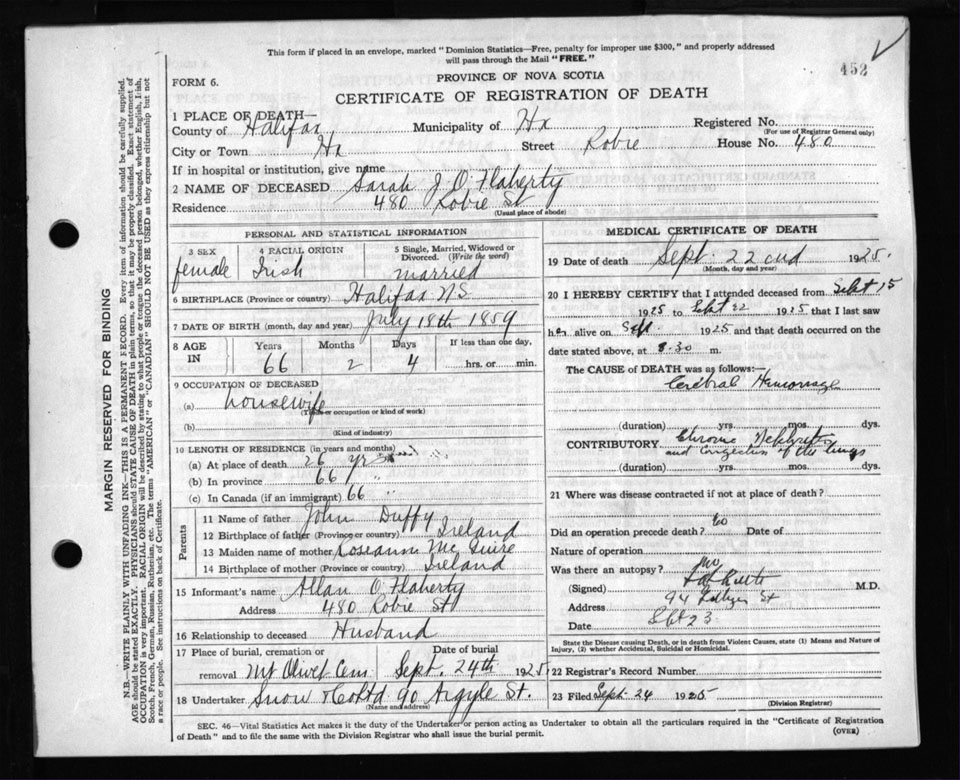 This form if placed in an envelope, marked "Dominion Statistics—Free, penalty for improper use $300," and properly addressed
will pass through the Mail "FREE."
452
FORM 6.
PROVINCE OF NOVA SCOTIA
CERTIFICATE OF REGISTRATION OF DEATH
1 PLACE OF DEATH—
County of Halifax Municipality of Hx Registered No.
(For use of Registrar General only)
City or Town Hx Street Robie House No. 480
If in hospital or institution, give name
2 NAME OF DECEASED Sarah J O'Flaherty
Residence 480 Robie St
(Usual place of abode)
PERSONAL AND STATISTICAL INFORMATION
3 SEX 4 RACIAL ORIGIN 5 Single, Married, Widowed or Divorced. (Write the word)
female Irish married
6 BIRTHPLACE (Province or country) Halifax N.S.
7 DATE OF BIRTH (month, day and year) July 18th 1859
8 AGE IN Years Months Days If less than one day,
66 2 4 hrs. or min.
9 OCCUPATION OF DECEASED
(a) housewife
(Trade or occupation or kind of work)
(b)
(Kind of industry)
10 LENGTH OF RESIDENCE (in years and months)
(a) At place of death 26 yrs
(b) In province 66 "
(c) In Canada (if an immigrant) 66 "
Parents
11 Name of father John Duffy
12 Birthplace of father (Province or country) Ireland
13 Maiden name of mother Roseanne Mc Guire
14 Birthplace of mother (Province or country) Ireland
15 Informant's name Allan O'Flaherty
Address 480 Robie St
16 Relationship to deceased Husband
17 Place of burial, cremation or removal Date of burial
Mt Olivet Cem Sept. 24th 1925
18 Undertaker Snow & Co Ltd 90 Argyle St.
(Name and address)
MEDICAL CERTIFICATE OF DEATH
19 Date of death Sept. 22 nd 1925.
(Month, day and year)
20 I HEREBY CERTIFY that I attended deceased from Sept 15
1925 to Sept 22 1925 that I last saw
her alive on 1925 and that death occurred on the
date stated above, at 8.30 m.
The CAUSE of DEATH was as follows:—
Cerebral Hemorrage
(duration) yrs. mos. dys.
CONTRIBUTORY Chronic Nephritis
and congestion of the lungs
(duration) yrs. mos. dys.
21 Where was disease contracted if not at place of death?
Did an operation precede death? Date of
Nature of operation
Was there an autopsy? No
(Signed) M.D.
Address 94 St
Date Sept 23
State the Disease causing Death, or in death from Violent Causes, state (1) Means and Nature of
Injury, (2) whether Accidental, Suicidal or Homicidal.
22 Registrar's Record Number
23 Filed Sept. 24 1925
(Division Registrar)
SEC. 46—Vital Statistics Act makes it the duty of the Undertaker or person acting as Undertaker to obtain all the particulars required in the "Certificate of Registration
of Death" and to file the same with the Division Registrar who shall issue the burial permit.
(OVER)
MARGIN RESERVED FOR BINDING
N.B.—WRITE PLAINLY WITH UNFADING INK—THIS IS A PERMANENT RECORD. Every item of information should be carefully supplied.
AGE should be stated EXACTLY. PHYSICIANS should STATE CAUSE OF DEATH in plain terms, so that it may be properly classified. Exact statement of
OCCUPATION is very important. RACIAL ORIGIN will be described by stating to what people or tongue the deceased person belonged, whether English, Irish,
Scotch, French, German, Russian, Ruthenian, etc. The terms "AMERICAN" or "CANADIAN" SHOULD NOT BE USED as they express citizenship but not
a race or people. See instructions on back of Certificate.